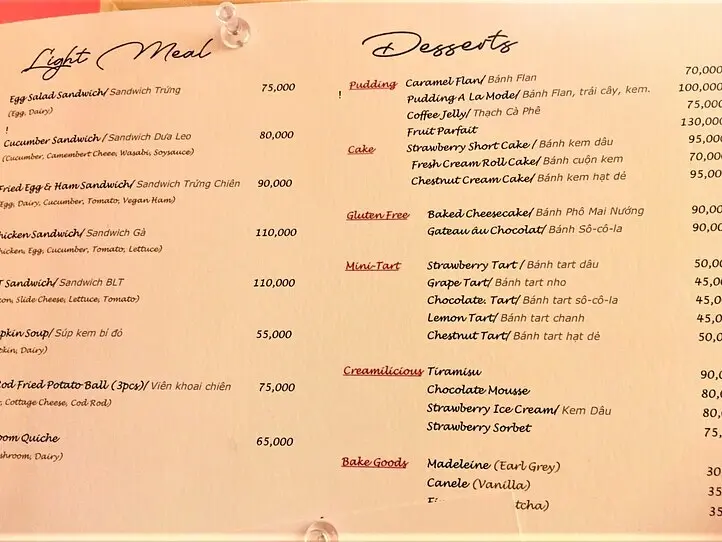 Light Meal
Egg Salad Sandwich/ Sandwich Trứng 75,000
(Egg, Dairy)
!
Cucumber Sandwich / Sandwich Dưa Leo 80,000
(Cucumber, Camembert Cheee, Wasabi, Soysauce)
Fried Egg & Ham Sandwich/ Sandwich Trứng Chiên 90,000
Egg, Dairy, Cucumber, Tomato, Vegan Ham)
hicken Sandwich/ Sandwich Gà 110,000
hicken, Egg, Cucumber, Tomato, Lettuce)
T Sandwich/ Sandwich BLT 110,000
con, Slide Cheese, Lettuce, Tomato)
pkin Soup/ Súp kem bí đỏ 55,000
pkin, Dairy)
od Fried Potato Ball (3pcs)/ Viên khoai chiên 75,000
, Cottage Cheese, Cod Rod)
oom Quiche 65,000
shroom, Dairy)
Desserts
Pudding Caramel Flan/ Bánh Flan 70,000
! Pudding A La Mode/ Bánh Flan, trái cây, kem. 100,000
Coffee Jelly/ Thạch Cà Phê 75,000
Fruit Parfait 130,000
Cake Strawberry Short Cake / Bánh kem dâu 95,000
Fresh Cream Roll Cake/ Bánh cuộn kem 70,000
Chestnut Cream Cake/ Bánh kem hạt dẻ 95,000
Gluten Free Baked Cheesecake/ Bánh Phô Mai Nướng 90,00
Gateau âu Chocolat/ Bánh Sô-cô-la 90,00
Mini-Tart Strawberry Tart / Bánh tart dâu 50,0
Grape Tart/ Bánh tart nho 45,0
Chocolate. Tart/ Bánh tart sô-cô-la 45,0
Lemon Tart/ Bánh tart chanh 45,0
Chestnut Tart/ Bánh tart hạt dẻ 50,0
Creamilicious Tiramisu 90,0
Chocolate Mousse 80,
Strawberry Ice Cream/ Kem Dâu 80,
Strawberry Sorbet 75,
Bake Goods Madeleine (Earl Grey) 30
Canele (Vanilla) 35
tcha) 35